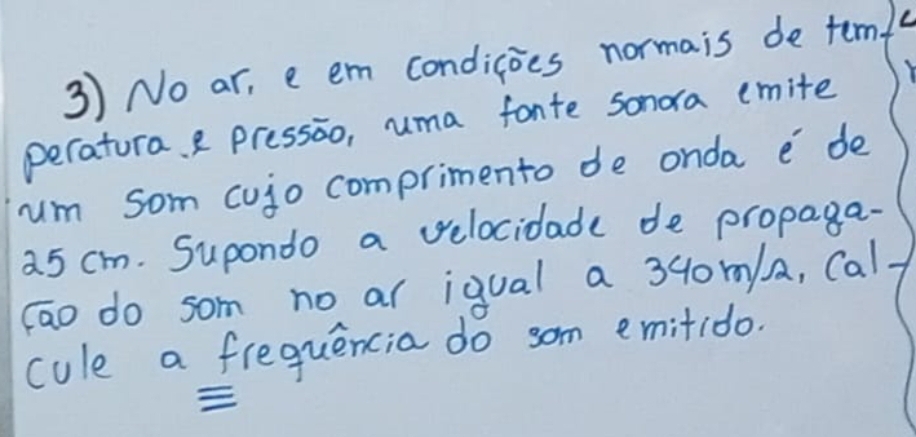 3) No ar, e em condições normais de tem-
peratura e pressão, uma fonte sonora emite
um som cujo comprimento de onda é de
25 cm. Supondo a velocidade de propaga-
ção do som no ar igual a 340 m/s, Cal-
cule a frequência do som emitido.